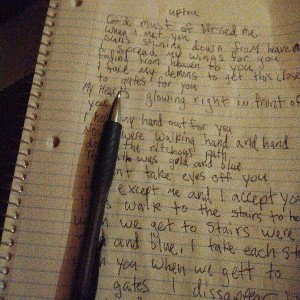 upton
God must of Blessed me
when I met you
suns shining down from heaven
spread my wings for you
from heaven to you
take my demons to get this close
to gates for you
My Hear s glowing right in front of
you
I my hand out for you
were walking hand and hand
the ritchous path
was gold and blue
nt take eyes off you
except me and I accept you
walk to the stairs to
we get to stairs were
and blue, I take each
you when we gett to
gates I